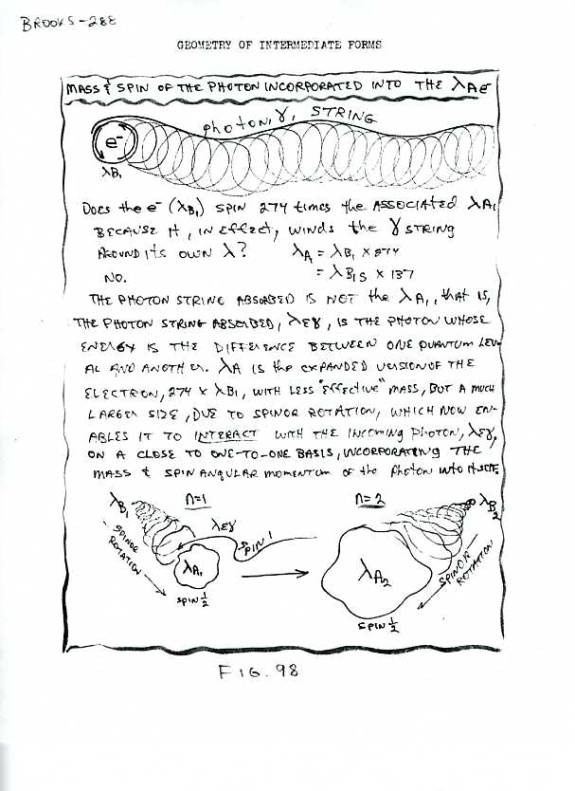 BROOKS-288
GEOMETRY OF INTERMEDIATE FORMS
MASS & SPIN OF THE PHOTON INCORPORATED INTO THE λAe-
photon, γ, STRING
e-
λB1
Does the e- (λB1) SPIN 274 times the ASSOCIATED λA1
BECAUSE it, IN EFFECT, WINDS the γ STRING
AROUND ITS OWN λ? λA = λB1 X 274
NO. = λB1S X 137
THE PHOTON STRING ABSORBED IS NOT the λA1, that IS,
THE PHOTON STRING ABSORBED, λEγ, IS THE PHOTON WHOSE
ENERGY IS THE DIFFERENCE BETWEEN ONE QUANTUM LEV-
AL AND ANOTHER. λA IS the EXPANDED VERSION OF THE
ELECTRON, 274 X λB1, WITH LESS "EFFECTIVE" MASS, BUT A MUCH
LARGER SIZE, DUE TO SPINOR ROTATION, WHICH NOW EN-
ABLES IT TO INTERACT WITH THE INCOMING PHOTON, λEγ,
ON A CLOSE TO ONE-TO-ONE BASIS, INCORPORATING THE
MASS & SPIN ANGULAR MOMENTUM OF the Photon INTO ITSELF.
λB1 n=1 n=2 λB2
SPINOR ROTATION
λEγ
SPIN 1
λA1
SPIN 1/2
λA2
SPINOR ROTATION
SPIN 1/2
FIG. 98